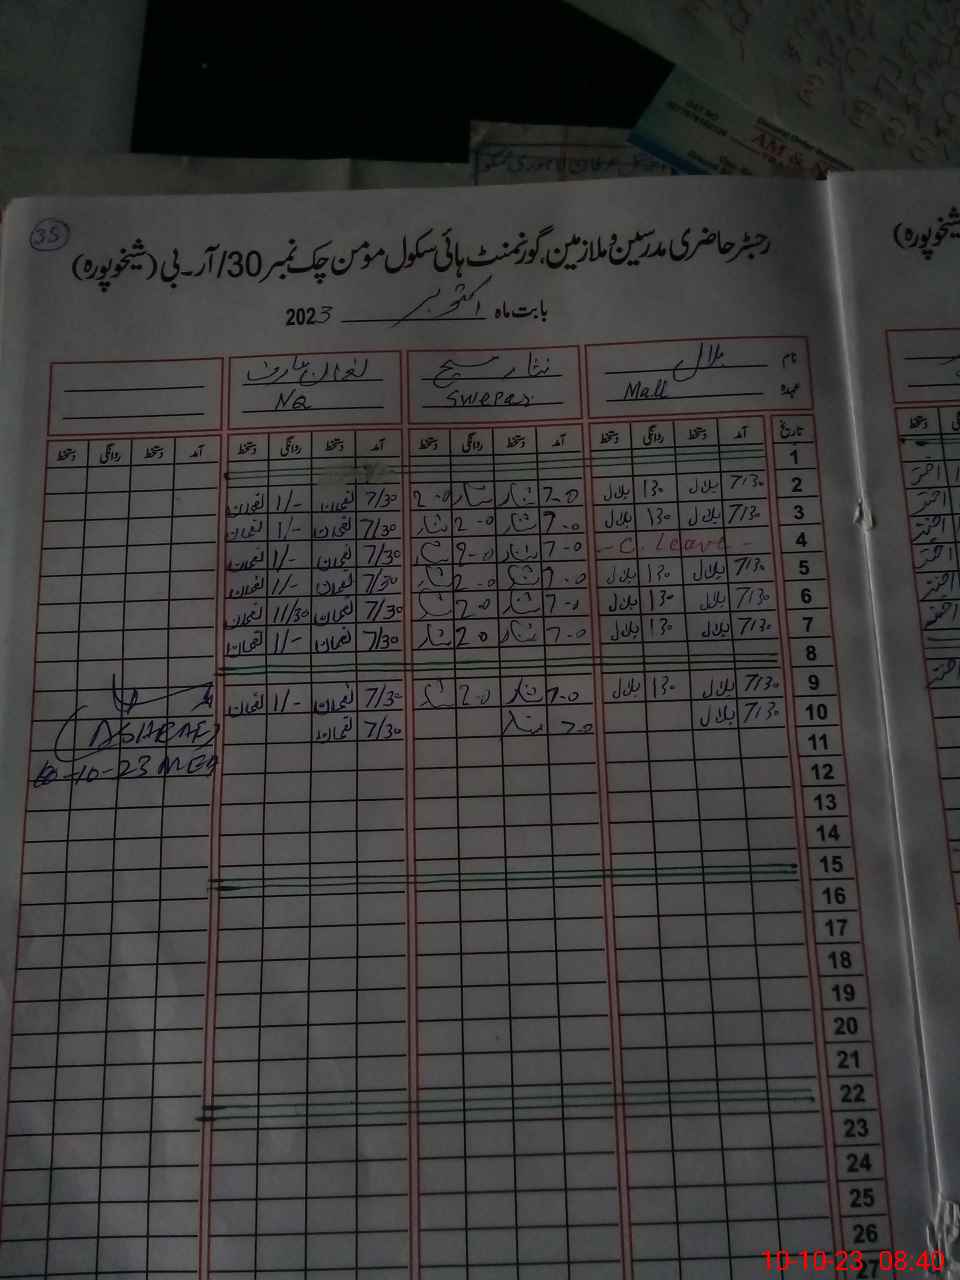 AM & S
35
رجسٹر حاضری مدرسین و ملازمین گورنمنٹ ہائی سکول مومن چک نمبر 30/آر۔بی (شیخوپورہ)
بابت ماہ اکتوبر 2023
نام بلال نثار مسیح نعمان
عہدہ Mali Sweper NQ
تاریخ آمد دستخط روانگی دستخط آمد دستخط روانگی دستخط آمد دستخط روانگی دستخط آمد دستخط روانگی دستخط
1
2 7/30 بلال 130 بلال 7-0 نثار 2-0 نثار 7/30 نعمان 1/- نعمان
3 7/30 بلال 130 بلال 7-0 نثار 2-0 نثار 7/30 نعمان 1/- نعمان
4 - C. Leave - 7-0 نثار 2-0 نثار 7/30 نعمان 1/- نعمان
5 7/30 بلال 130 بلال 7-0 نثار 2-0 نثار 7/30 نعمان 1/- نعمان
6 7/30 بلال 130 بلال 7-0 نثار 2-0 نثار 7/30 نعمان 11/30 نعمان
7 7/30 بلال 130 بلال 7-0 نثار 2-0 نثار 7/30 نعمان 1/- نعمان
8
9 7/30 بلال 130 بلال 7-0 نثار 2-0 نثار 7/30 نعمان 1/- نعمان
10 7/30 بلال 7-0 نثار 7/30 نعمان
(ASHRAF)
10-10-23 MEA
11
12
13
14
15
16
17
18
19
20
21
22
23
24
25
26
27
10-10-23 08:40